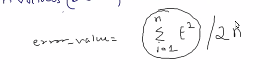 error_value = (∑_{i=1}^{n} t²) / 2n